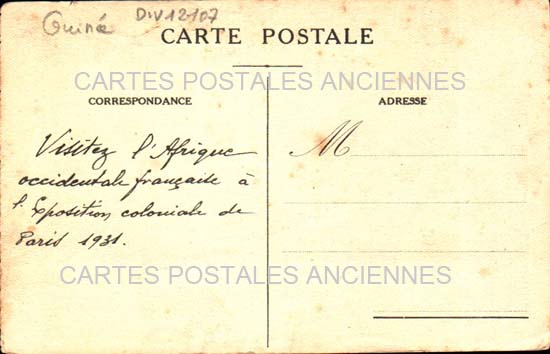 Guiné DIV12-107
CARTE POSTALE
CARTES POSTALES ANCIENNES
CORRESPONDANCE
ADRESSE
Visitez l'Afrique
occidentale française à
l'Exposition coloniale de
Paris 1931.
M
CARTES POSTALES ANCIENNES